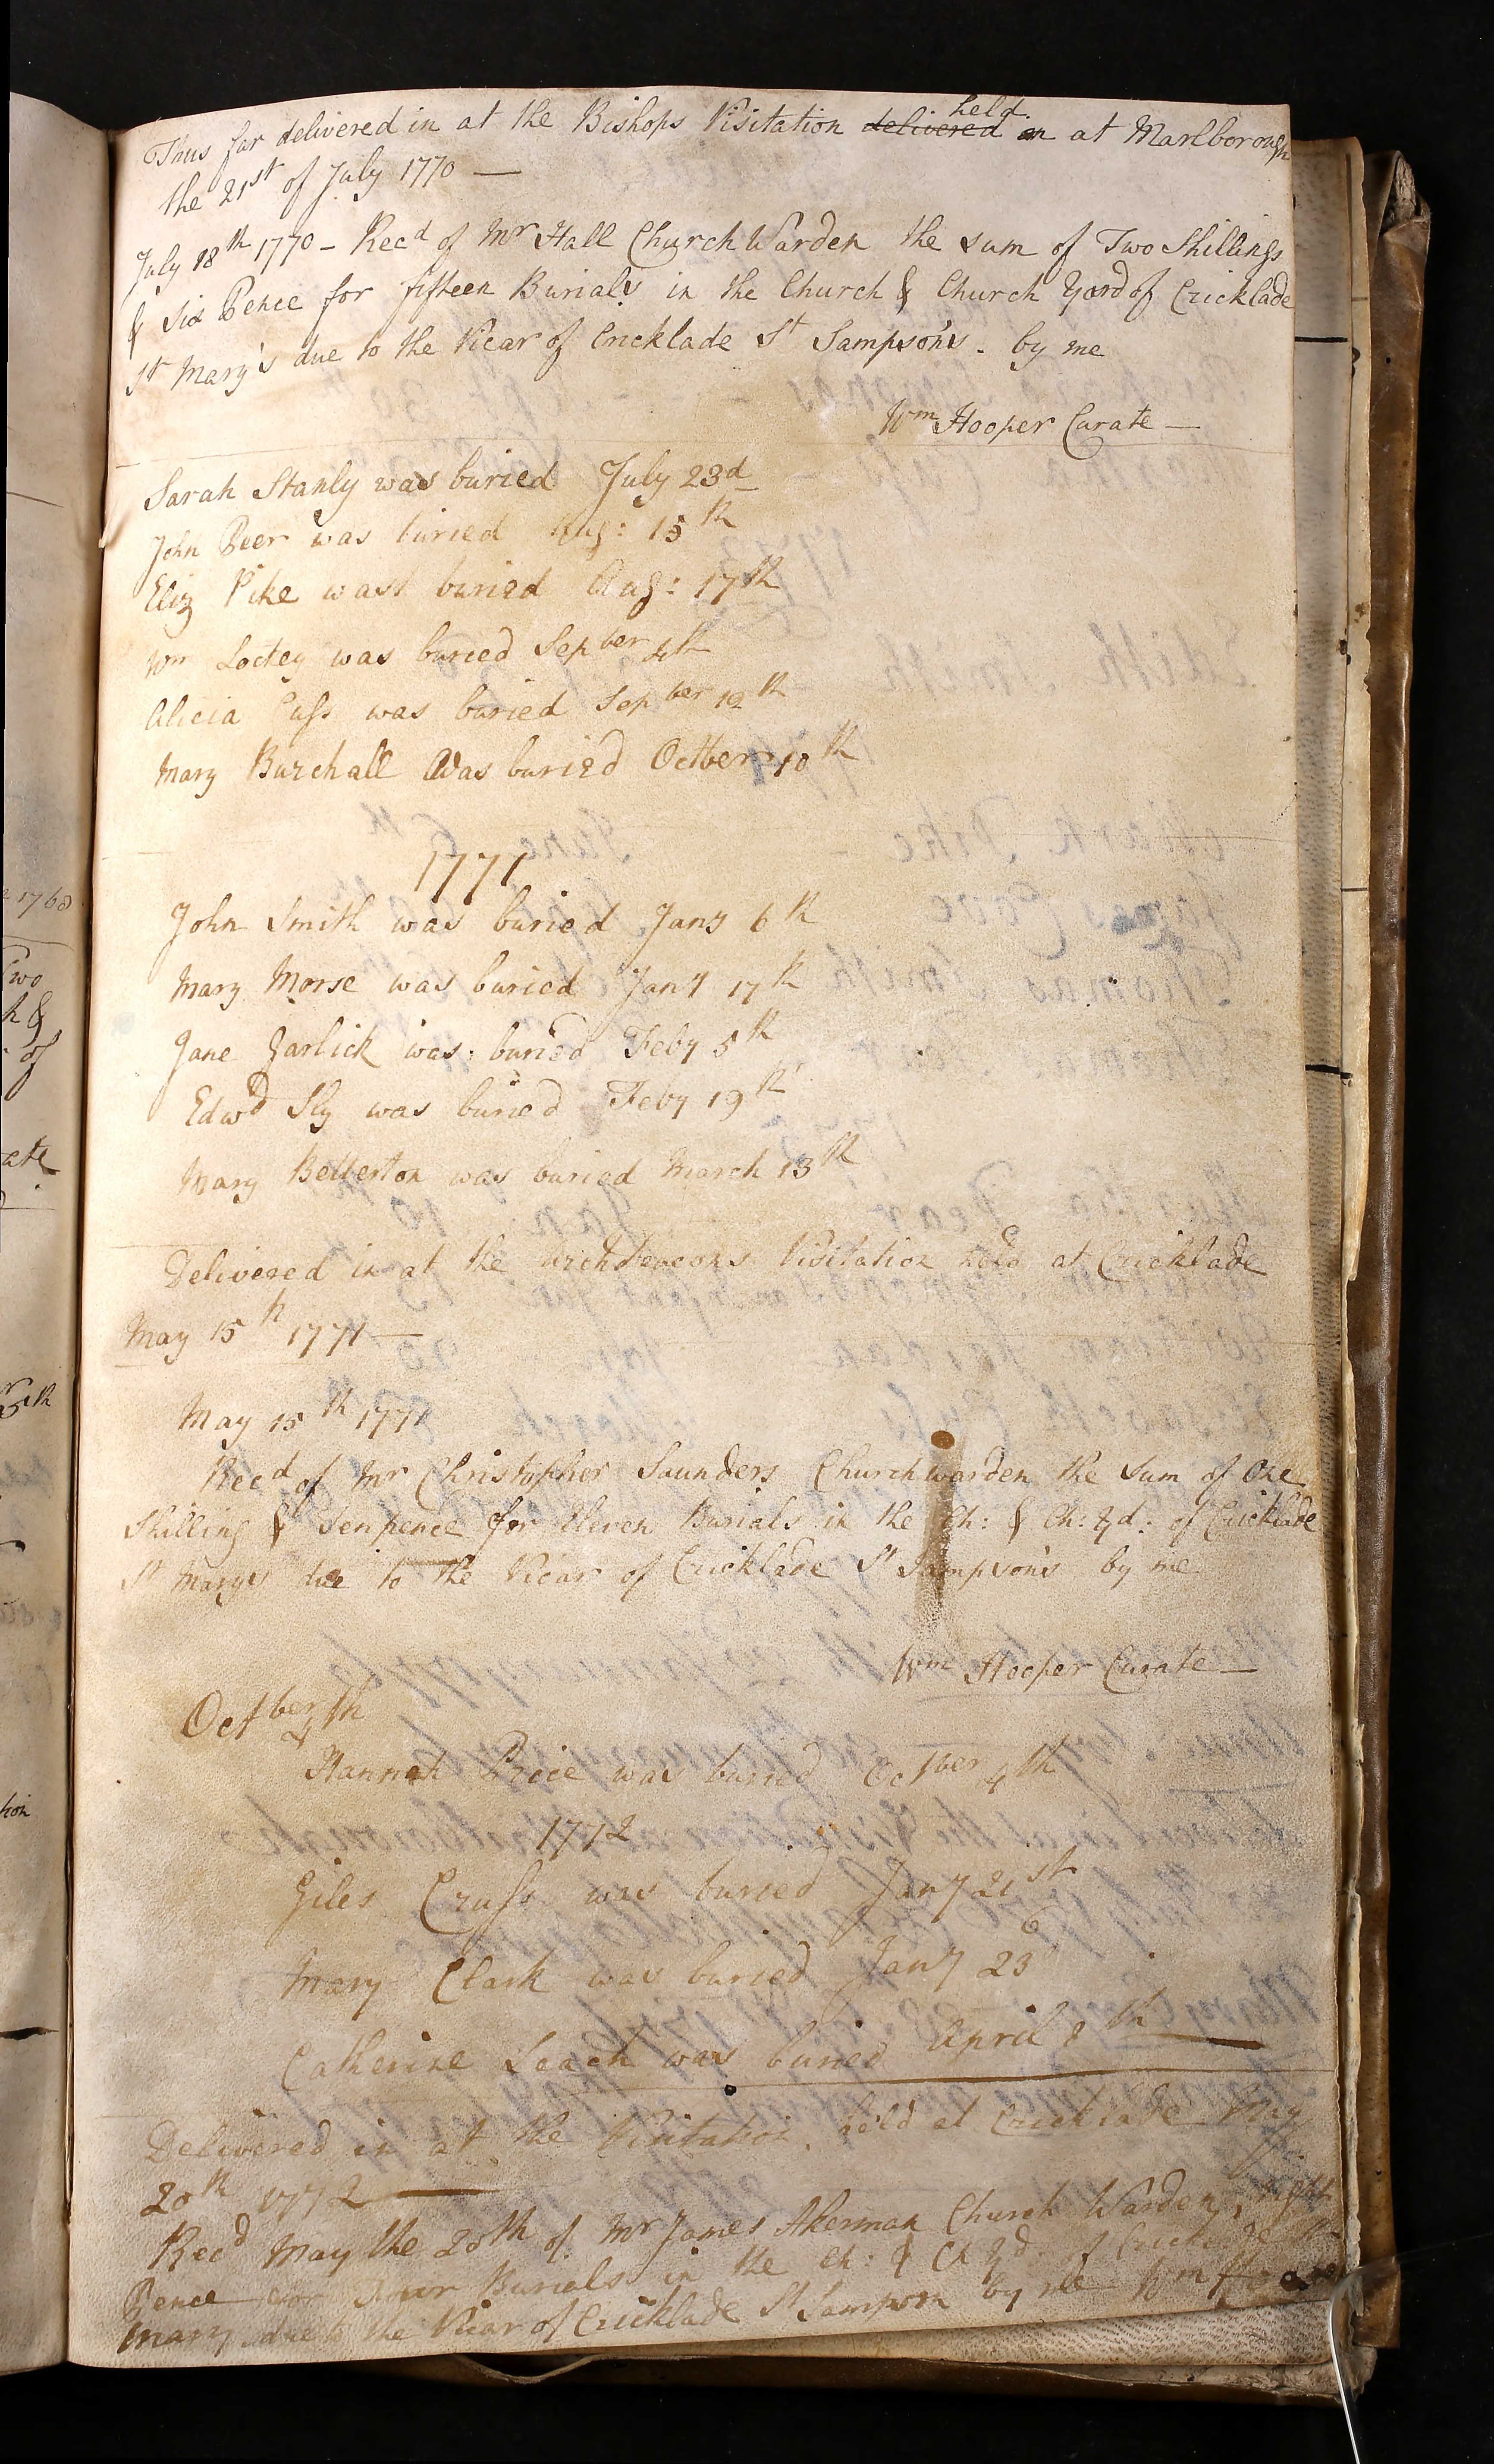 Thus far delivered in at the Bishops Visitation delivered in held at Marlborough
the 21st of July 1770 —
July 18th 1770 - Recd of Mr Hall Church Warden the sum of Two Shillings
& Six Pence for fifteen Burials in the Church & Church Yard of Cricklade
St Mary's due to the Vicar of Cricklade St Sampson's - by me
Wm Hooper Curate —
Sarah Stanly was buried July 23d
John Peer was buried Aug: 15th
Eliz Pike was buried Aug: 17th
Wm Loctey was buried Sepber 4th
Alicia Cuss was buried Sepber 12th
Mary Burchall Was buried Octber 10th
1771
John Smith was buried Jany 6th
Mary Morse was buried Jany 17th
Jane Garlick was buried Feby 5th
Edwd Sly was buried Feby 19th
Mary Betterton was buried March 13th
Delivered in at the archdeacons Visitation held at Cricklade
May 15th 1771 —
May 15th 1771
Recd of Mr Christopher Saunders Churchwarden the Sum of One
Shilling & Tenpence for Eleven Burials in the Ch: & Ch: Yd: of Cricklade
St Marys due to the Vicar of Cricklade St Sampson's by me
Wm Hooper Curate —
Octber 4th
Hannah Price was buried Octber 4th
1772
Giles Cruss was buried Jany 21st
Mary Clark was buried Jany 23d
Catherine Leach was buried April 8th
Delivered in at the Visitation held at Cricklade May
20th 1772 —
Recd May the 20th of Mr James Akerman Church Warden, eight
Pence for Four Burials in the Ch: & Ch Yd: of Cricklade St
Mary due to the Vicar of Cricklade St Sampson by me Wm Hooper